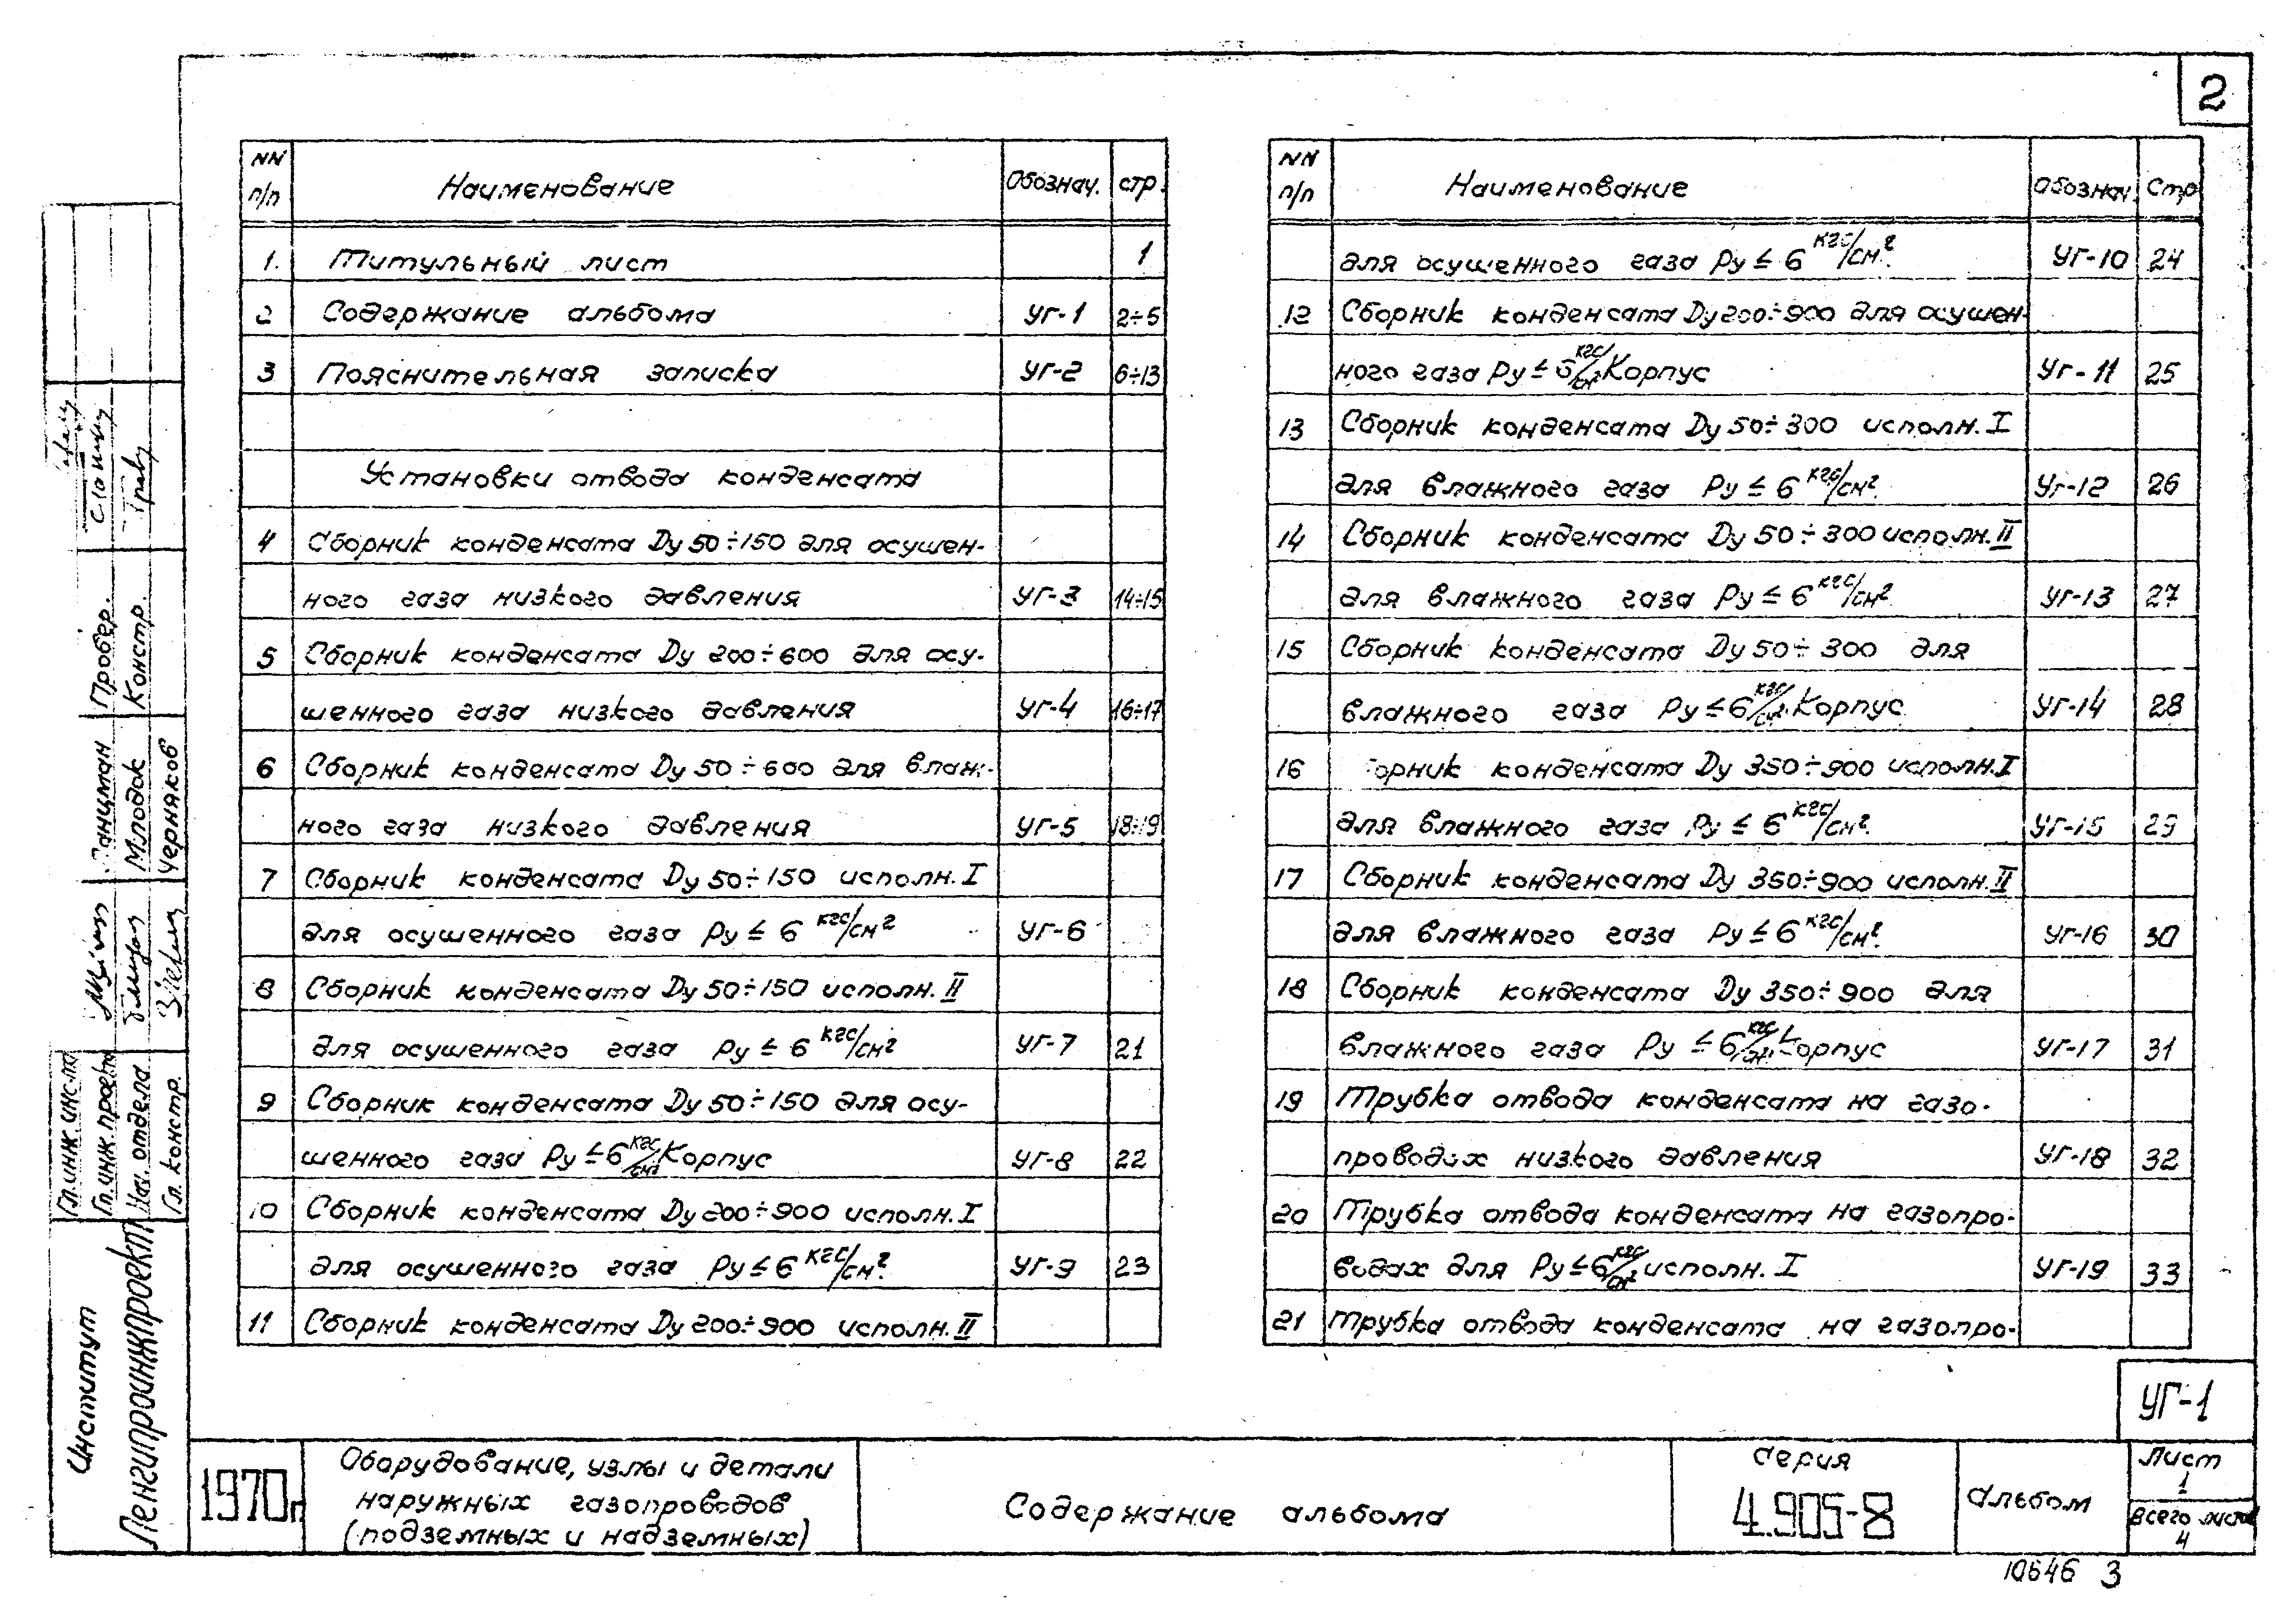 2
NN п/п Наименование Обознач. стр.
1. Титульный лист 1
2 Содержание альбома УГ-1 2÷5
3 Пояснительная записка УГ-2 6÷13
Установки отвода конденсата
4 Сборник конденсата Dу 50÷150 для осушен-
ного газа низкого давления УГ-3 14÷15
5 Сборник конденсата Dу 200÷600 для осу-
шенного газа низкого давления УГ-4 16÷17
6 Сборник конденсата Dу 50÷600 для влаж-
ного газа низкого давления УГ-5 18÷19
7 Сборник конденсата Dу 50÷150 исполн. I
для осушенного газа Ру ≤ 6 кгс/см² УГ-6
8 Сборник конденсата Dу 50÷150 исполн. II
для осушенного газа Ру ≤ 6 кгс/см² УГ-7 21
9 Сборник конденсата Dу 50÷150 для осу-
шенного газа Ру ≤ 6 кгс/см² Корпус УГ-8 22
10 Сборник конденсата Dу 200÷900 исполн. I
для осушенного газа Ру ≤ 6 кгс/см² УГ-9 23
11 Сборник конденсата Dу 200÷900 исполн. II
NN п/п Наименование Обознач. Стр
для осушенного газа Ру ≤ 6 кгс/см² УГ-10 24
12 Сборник конденсата Dу 200÷900 для осушен-
ного газа Ру ≤ 6 кгс/см² Корпус УГ-11 25
13 Сборник конденсата Dу 50÷300 исполн. I
для влажного газа Ру ≤ 6 кгс/см² УГ-12 26
14 Сборник конденсата Dу 50÷300 исполн. II
для влажного газа Ру ≤ 6 кгс/см² УГ-13 27
15 Сборник конденсата Dу 50÷300 для
влажного газа Ру ≤ 6 кгс/см² Корпус УГ-14 28
16 орник конденсата Dу 350÷900 исполн. I
для влажного газа Ру ≤ 6 кгс/см² УГ-15 29
17 Сборник конденсата Dу 350÷900 исполн. II
для влажного газа Ру ≤ 6 кгс/см² УГ-16 30
18 Сборник конденсата Dу 350÷900 для
влажного газа Ру ≤ 6 кгс/см² Корпус УГ-17 31
19 Трубка отвода конденсата на газо-
проводах низкого давления УГ-18 32
20 Трубка отвода конденсата на газопро-
водах для Ру ≤ 6 кгс/см² исполн. I УГ-19 33
21 Трубка отвода конденсата на газопро-
Провер.
Констр.
Ганцман
Млодок
Черняков
Гл. инж. инс-та
Гл. инж. проекта
Нач. отдела
Гл. констр.
Институт
Ленгипроинжпроект
УГ-1
1970г
Оборудование, узлы и детали
наружных газопроводов
(подземных и надземных)
Содержание альбома
Серия
4.905-8
Альбом
Лист
1
Всего листов
4
10646 3